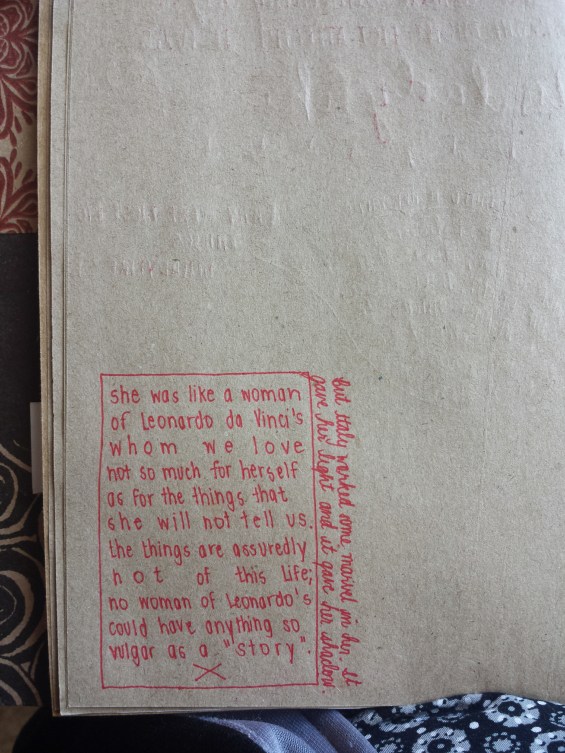 she was like a woman
of Leonardo da Vinci's
whom we love
not so much for herself
as for the things that
she will not tell us.
the things are assuredly
not of this life;
no woman of Leonardo's
could have anything so
vulgar as a "story".
but Italy worked some marvel in her. it
gave her light and it gave her shadow.